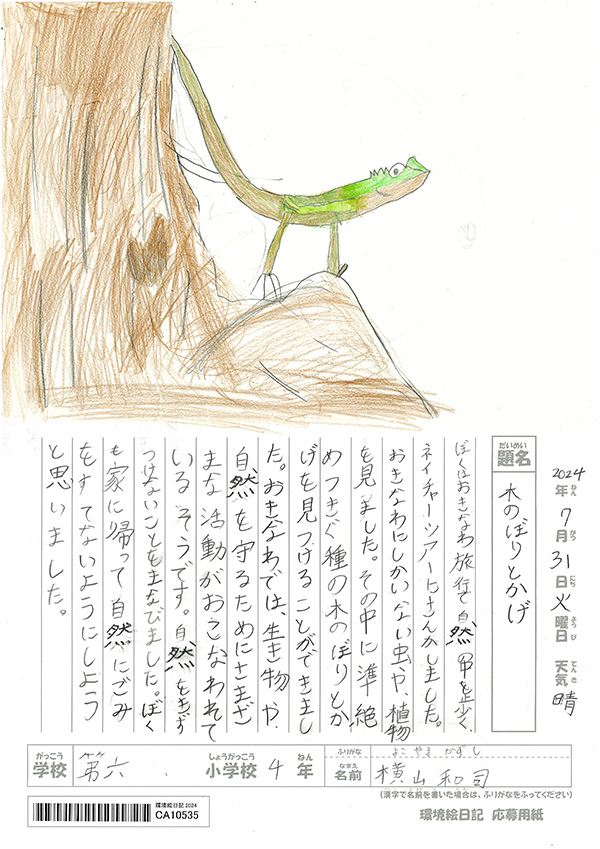 2024年7月31日火曜日 天気 晴
ねん がつ にち ようび てんき
だいめい
題名
木のぼりとかげ
ぼくはおきなわ旅行で自然の中を歩く、
ネイチャーツアーにさんかしました。
おきなわにしかいない虫や、植物
を見ました。その中に準絶
めつきぐ種の木のぼりとか
げを見つけることができまし
た。おきなわでは、生き物や、
自然を守るためにさまざ
まな活動がおこなわれて
いるそうです。自然をきず
つけないことをまなびました。ぼく
も家に帰って自然にごみ
をすてないようにしよう
と思いました。
がっこう しょうがっこう ねん
学校 第六 小学校 4年
ふりがな よこやま かずし
なまえ
名前 横山 和司
(漢字で名前を書いた場合は、ふりがなをふってください)
環境絵日記 2024
CA10535
環境絵日記 応募用紙